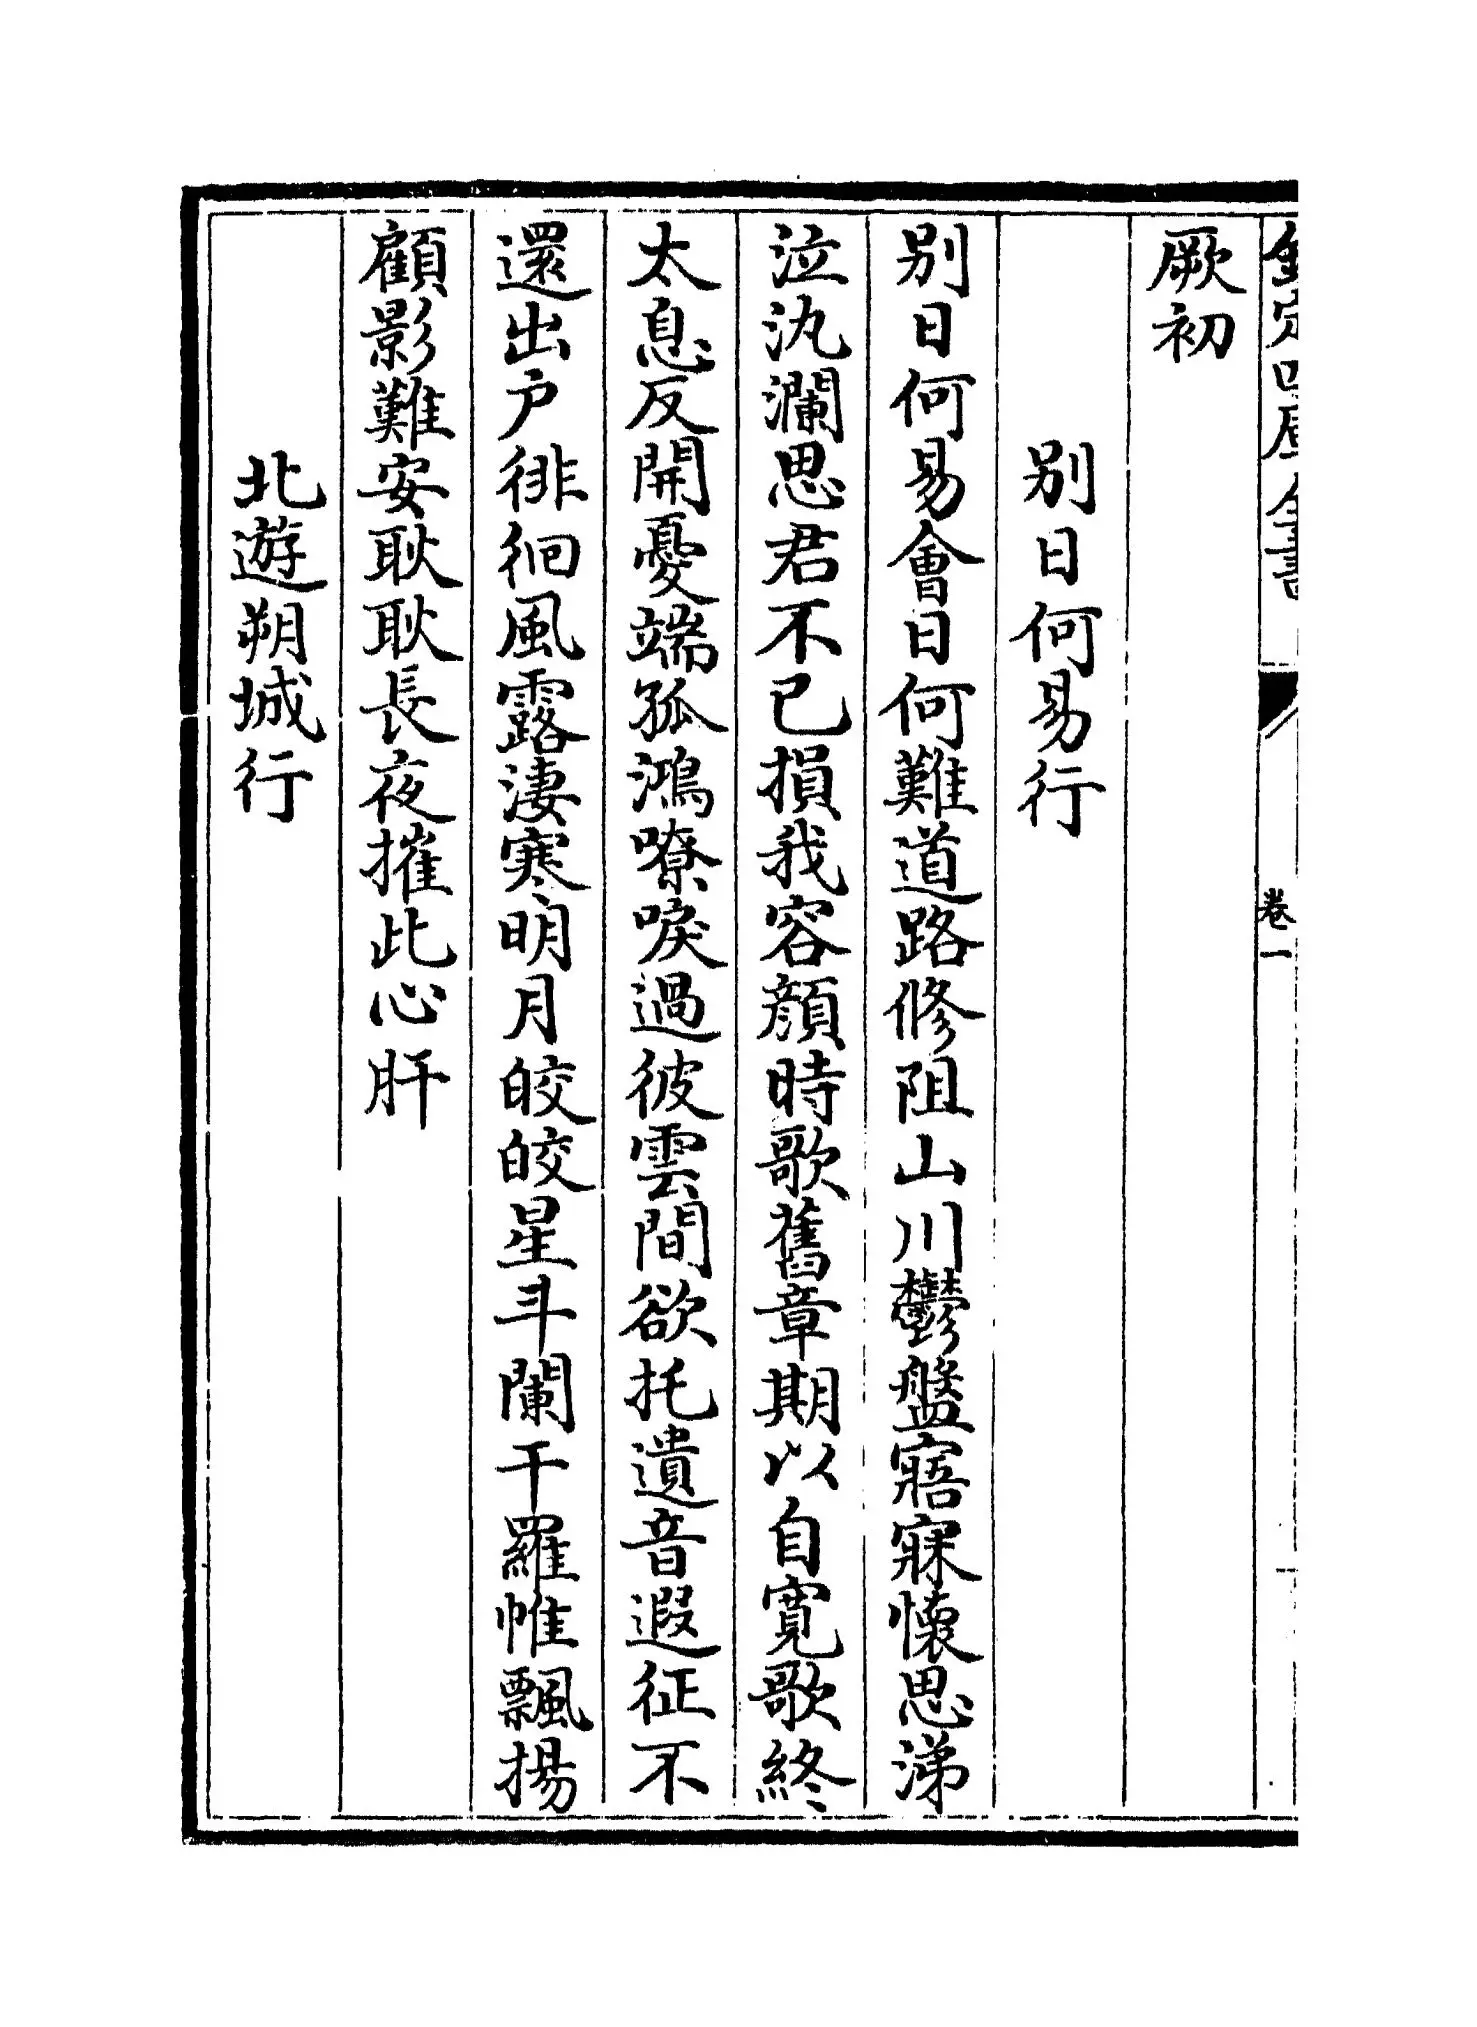 欽定四庫全書
卷一
厥初
別日何易行
別日何易會日何難道路修阻山川鬱盤寤寐懷思涕
泣汍瀾思君不已損我容顔時歌舊章期以自寬歌終
太息反開憂端孤鴻嘹唳過彼雲間欲托遺音遐征不
還出户徘徊風露淒寒明月皎皎星斗闌干羅帷飄揚
顧影難安耿耿長夜摧此心肝
北遊朔城行